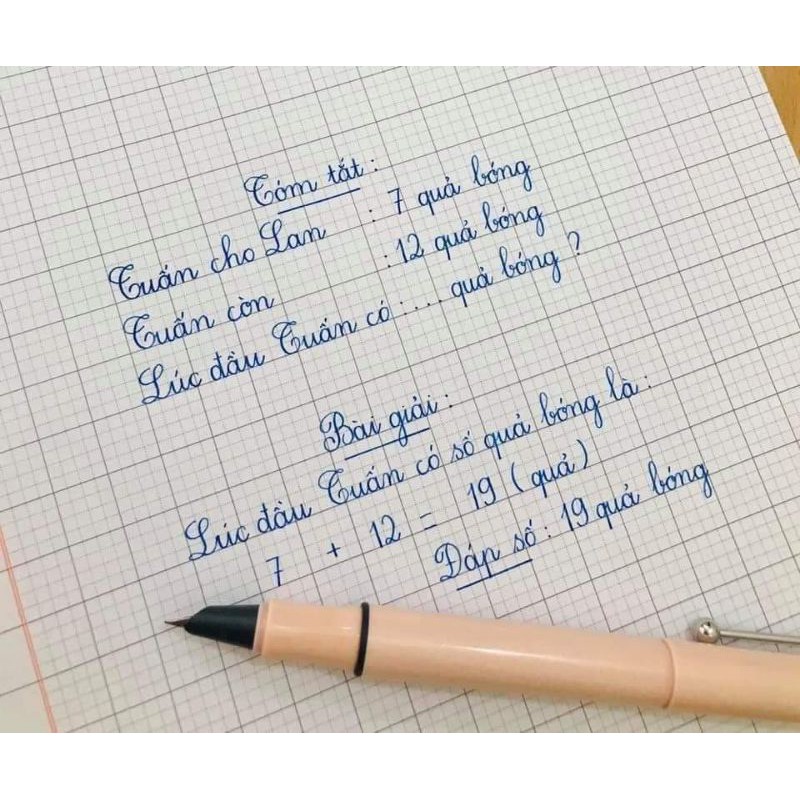 Tóm tắt:
Tuấn cho Lan : 7 quả bóng
Tuấn còn : 12 quả bóng
Lúc đầu Tuấn có : ... quả bóng ?
Bài giải:
Lúc đầu Tuấn có số quả bóng là:
7 + 12 = 19 (quả)
Đáp số: 19 quả bóng